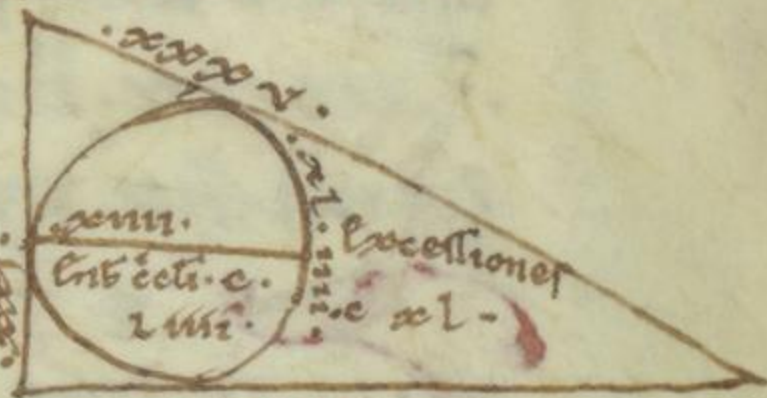 .xxxv.
.xl.iiii.
.xiiii.
Emb ccli.c.
liiii.
Excessiones
.c xl-